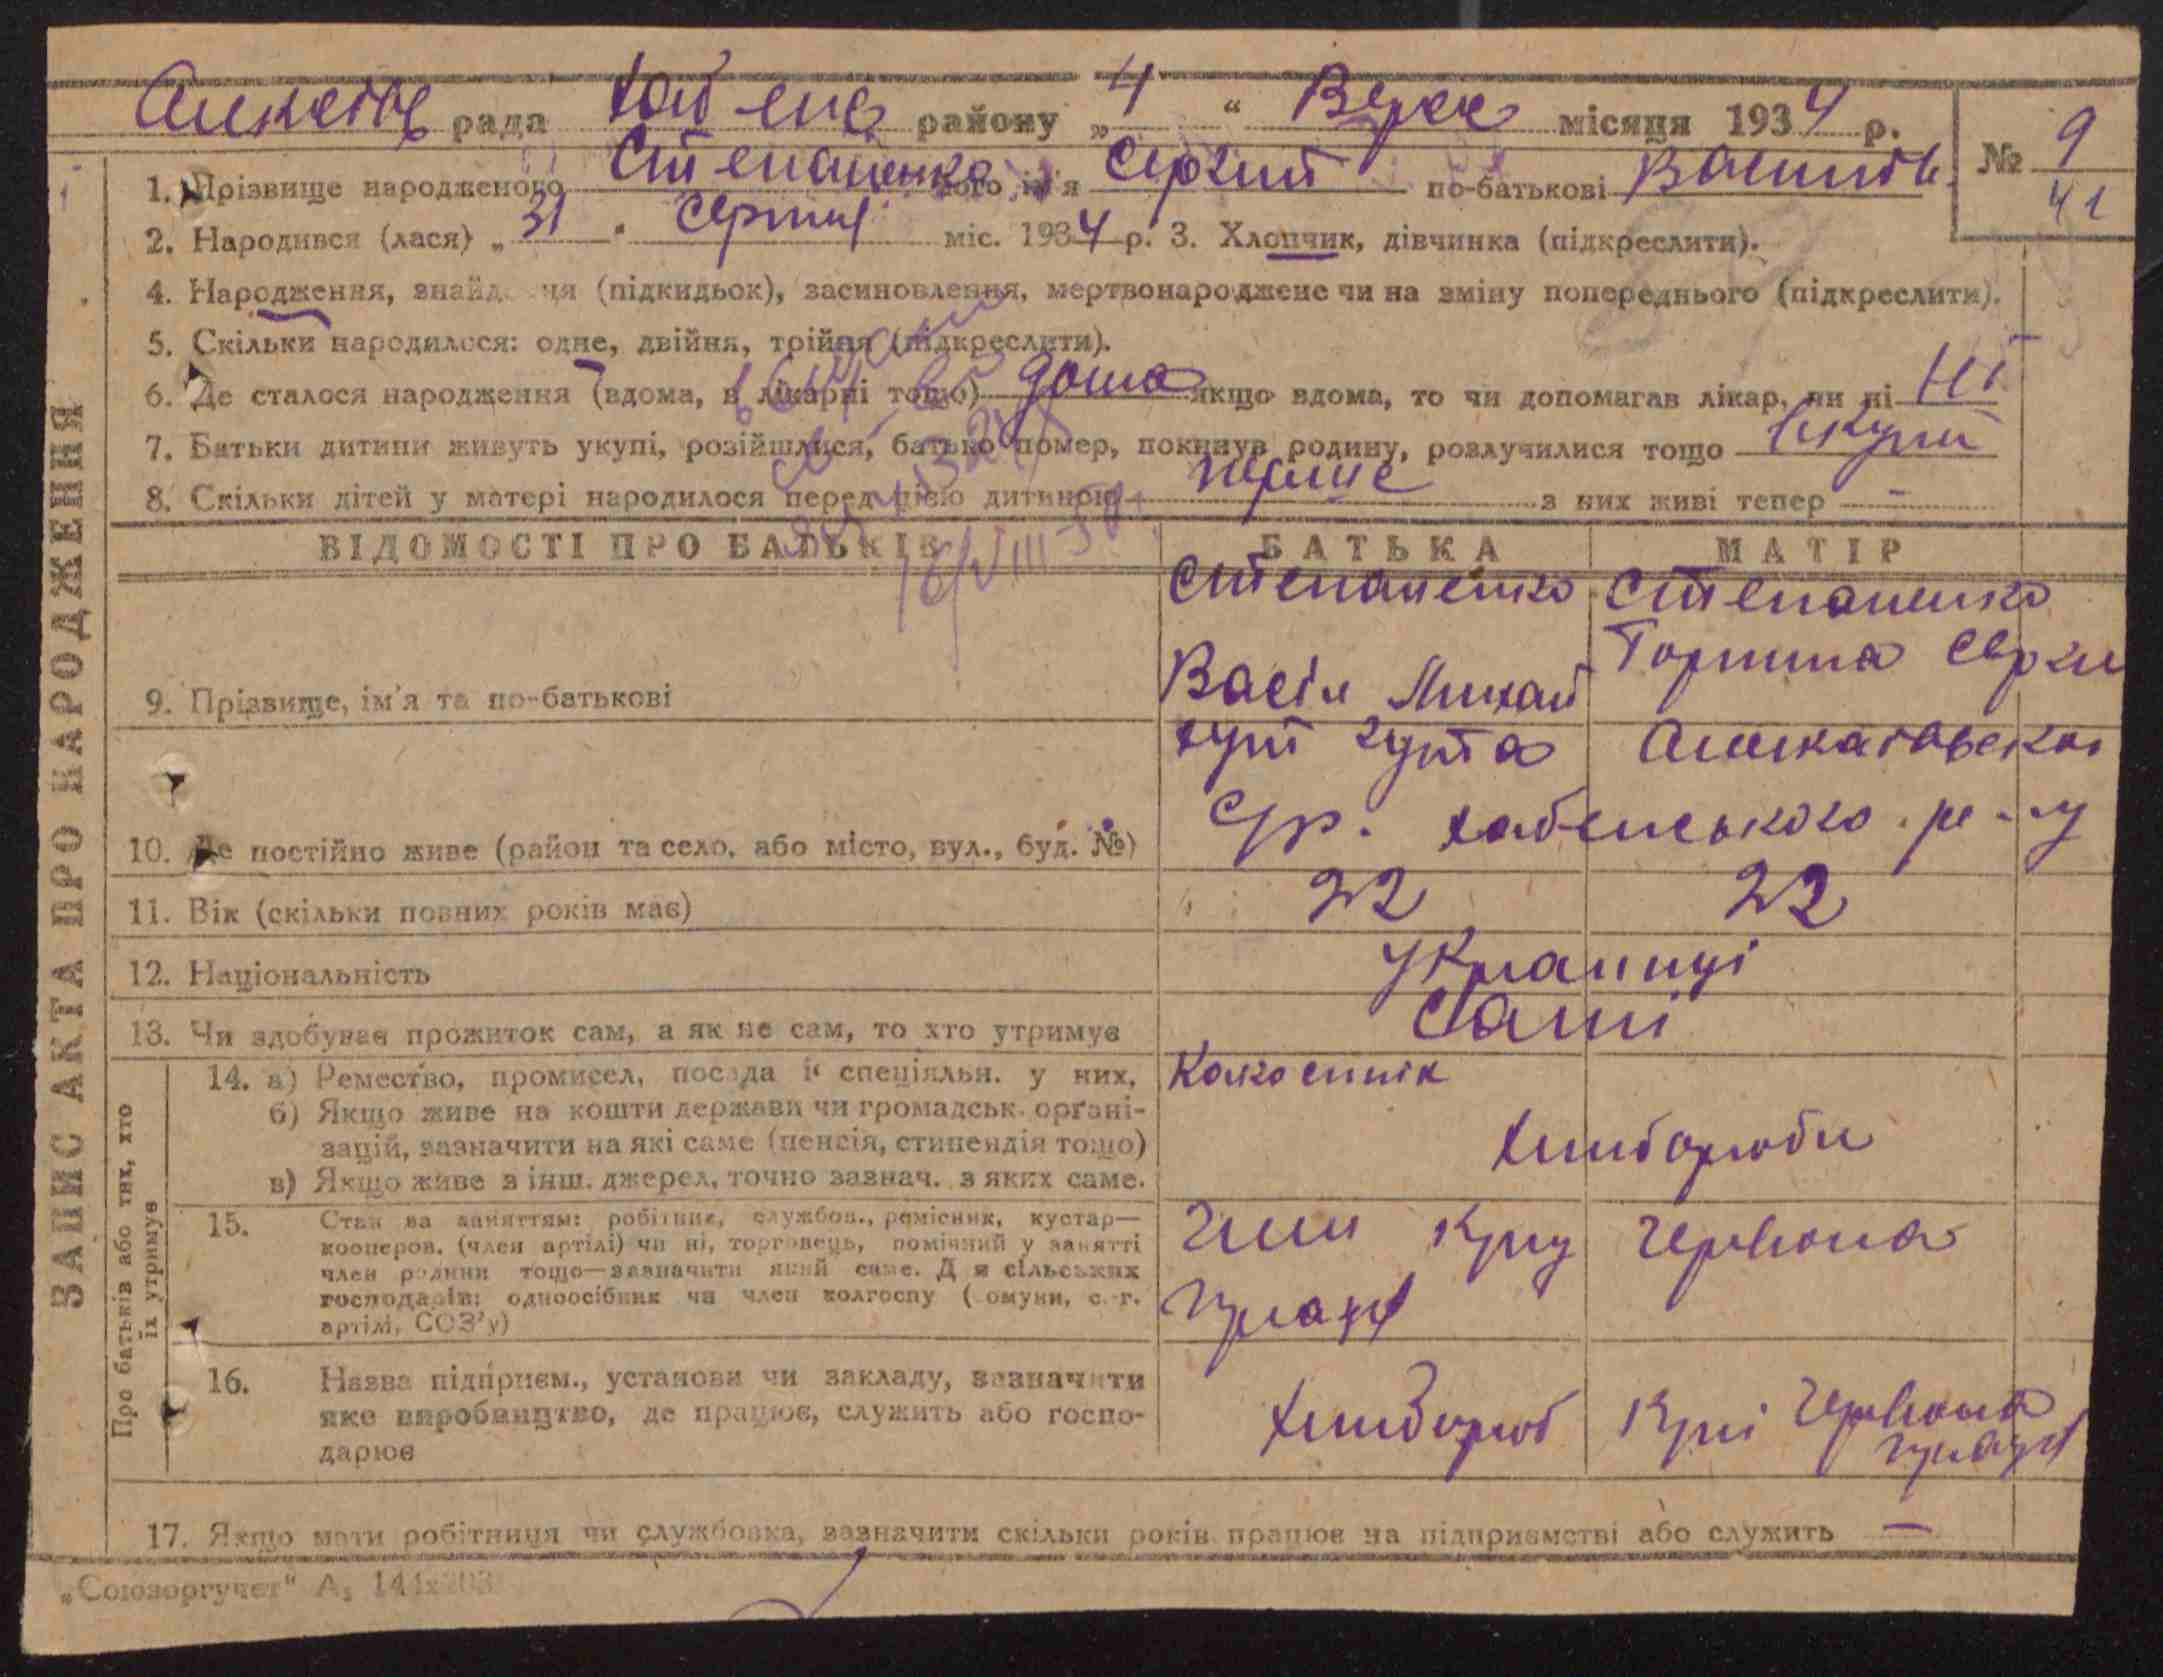 рада Хабенс району „4“ Верес місяця 1934 р.
№ 9
41
1. Прізвище народженого Степаненко його ім'я Сергий по-батькові Васильв.
2. Народився (лася) „31“ Серпня міс. 1934 р. 3. Хлопчик, дівчинка (підкреслити).
4. Народження, знайдення (підкидьок), засиновлення, мертвонароджене чи на зміну попереднього (підкреслити).
5. Скільки народилося: одне, двійня, трійня (підкреслити).
6. Де сталося народження (вдома, в лікарні тощо) дома якщо вдома, то чи допомагав лікар, чи ні Ні
7. Батьки дитини живуть укупі, розійшлися, батько помер, покинув родину, розлучилися тощо вкупи
8. Скільки дітей у матері народилося перед цією дитиною перше з них живі тепер –
ВІДОМОСТІ ПРО БАТЬКІВ БАТЬКА МАТІР
Степаненко Степаненко
9. Прізвище, ім'я та по-батькові Васіл Михай
10. Де постійно живе (район та село, або місто, вул., буд. №) с/р. Хабенського р-ну
11. Вік (скільки повних років має) 22 22
12. Національність Украинці
13. Чи здобуває прожиток сам, а як не сам, то хто утримує Сами
Про батьків або тих, хто їх утримує
14. а) Ремество, промисел, посада й спеціяльн. у них,
б) Якщо живе на кошти держави чи громадськ. органі-
зацій, зазначити на які саме (пенсія, стипендія тощо)
в) Якщо живе з інш. джерел, точно зазнач. з яких саме.
Колгоспнік
Хлибороби
15. Стан за заняттям: робітник, службов., ремісник, кустар—
кооперов. (член артілі) чи ні, торговець, помічний у занятті
член родини тощо—зазначити який саме. Для сільських
господарів: одноосібник чи член колгоспу (комуни, с.-г.
артілі, СОЗ'у)
Член Червона
Праця
16. Назва підприєм., установи чи закладу, зазначити
яке виробництво, де працює, служить або госпо-
дарює
Хлибороб Червона
праця
17. Якщо мати робітниця чи службовка, зазначити скільки років працює на підприємстві або служить –
„Союзоргучет“
ЗАПИС АКТА ПРО НАРОДЖЕННЯ